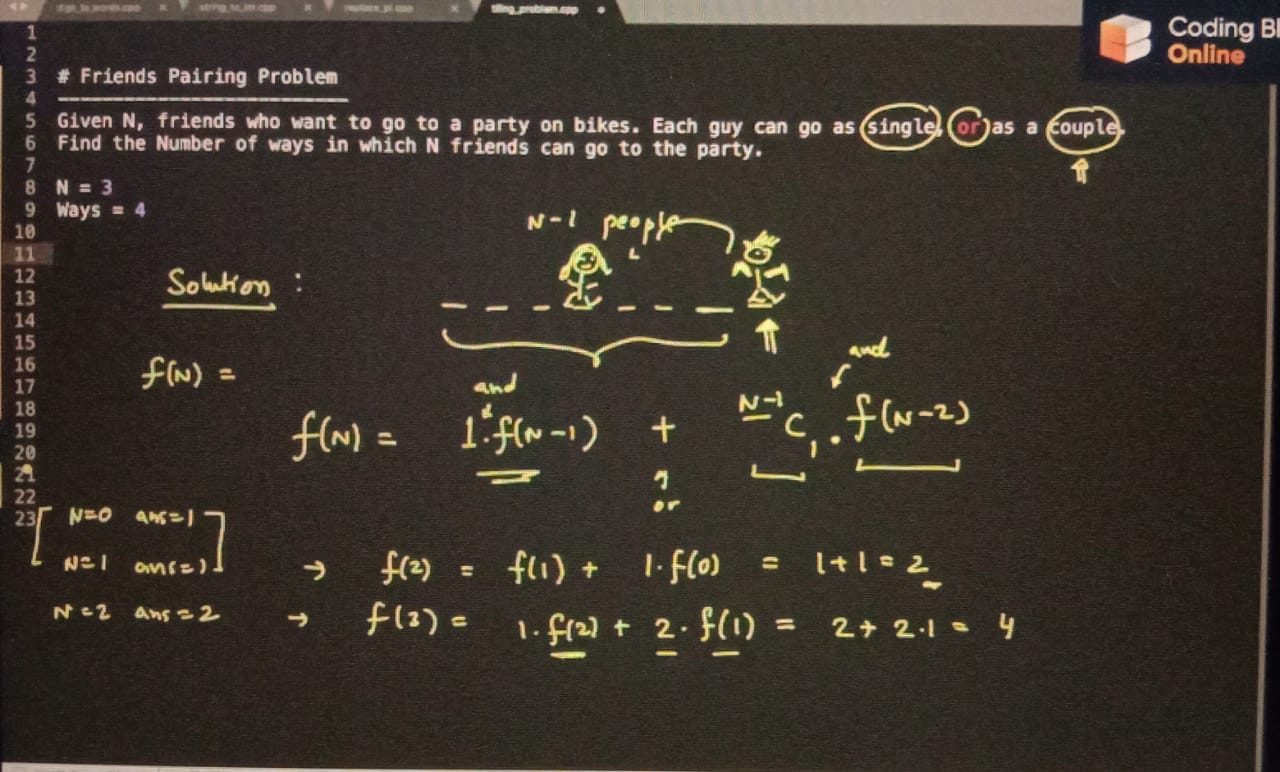 digit_to_words.cpp string_to_int.cpp replace_pi.cpp tiling_problem.cpp
Coding Bl
Online
1
2
3 # Friends Pairing Problem
4 --------------------------
5 Given N, friends who want to go to a party on bikes. Each guy can go as single, or as a couple.
6 Find the Number of ways in which N friends can go to the party.
7
8 N = 3
9 Ways = 4
10
11
12
13
14
15
16
17
18
19
20
21
22
23
N-1 people
Solution :
f(N) =
and
and
f(N) = 1.f(N-1) + N-1C1 . f(N-2)
or
N=0 ans=1
N=1 ans=1 → f(2) = f(1) + 1.f(0) = 1+1=2
N=2 ans=2 → f(3) = 1.f(2) + 2.f(1) = 2+2.1= 4